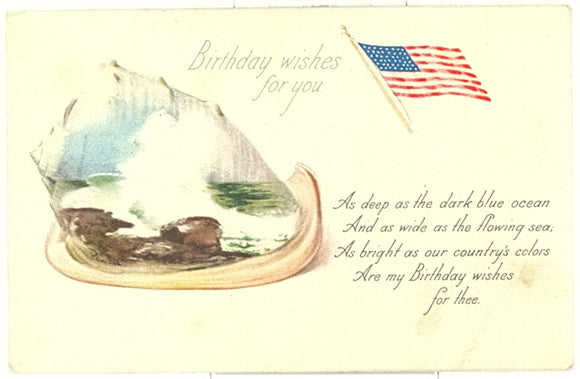 Birthday wishes
for you
As deep as the dark blue ocean
And as wide as the flowing sea;
As bright as our country's colors
Are my Birthday wishes
for thee.